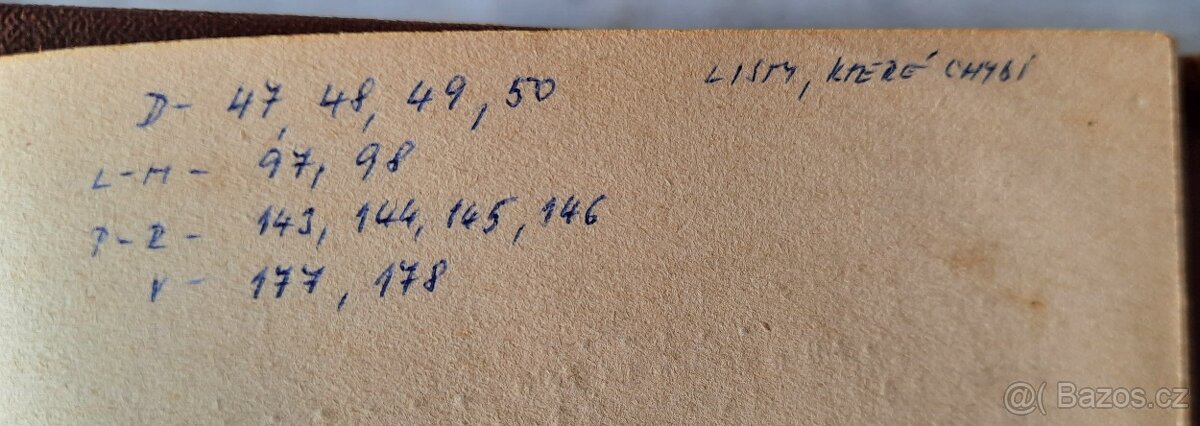 LISTY, KTERÉ CHYBÍ
D - 47, 48, 49, 50
L-M - 97, 98
P-R - 143, 144, 145, 146
V - 177, 178
@( Bazos.cz